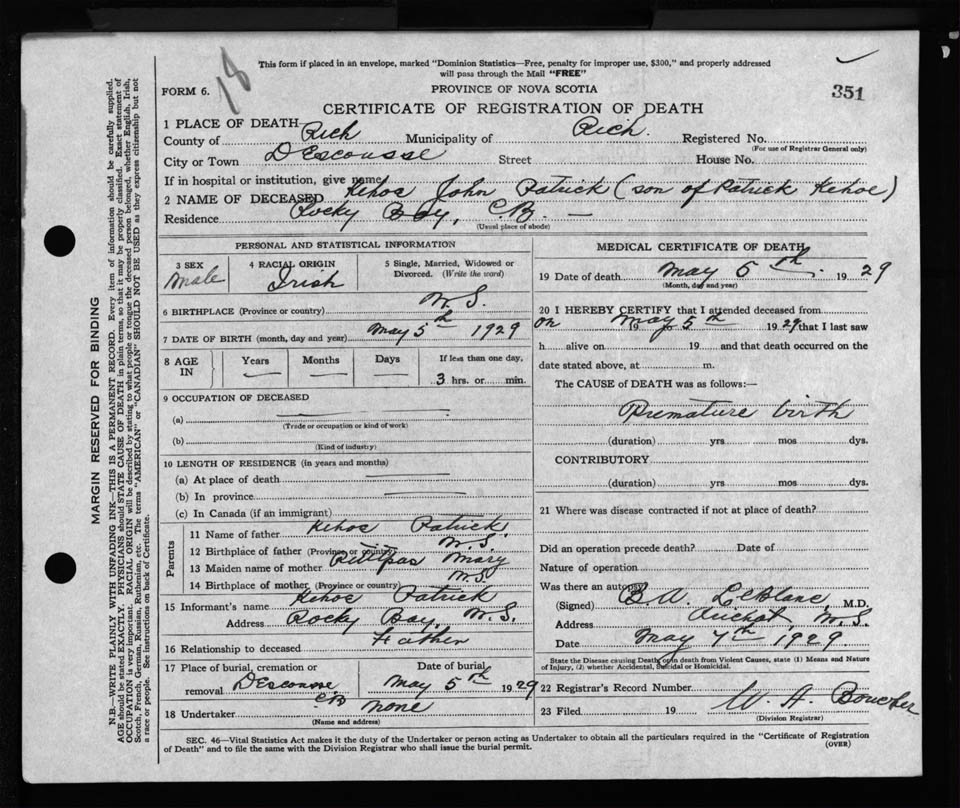 18
This form if placed in an envelope, marked "Dominion Statistics—Free, penalty for improper use, $300," and properly addressed
will pass through the Mail "FREE"
FORM 6.
PROVINCE OF NOVA SCOTIA
351
CERTIFICATE OF REGISTRATION OF DEATH
1 PLACE OF DEATH
County of Rich Municipality of Rich. Registered No.
(For use of Registrar General only)
City or Town DEscousse Street House No.
If in hospital or institution, give name
2 NAME OF DECEASED Kehoe John Patrick (son of Patrick Kehoe)
Residence Rocky Bay, C.B. —
(Usual place of abode)
PERSONAL AND STATISTICAL INFORMATION
3 SEX
Male
4 RACIAL ORIGIN
Irish
5 Single, Married, Widowed or
Divorced. (Write the word)
6 BIRTHPLACE (Province or country) N.S.
7 DATE OF BIRTH (month, day and year) May 5th 1929
8 AGE
IN
Years
—
Months
—
Days
—
If less than one day,
3 hrs. or min.
9 OCCUPATION OF DECEASED
(a)
(Trade or occupation or kind of work)
(b)
(Kind of industry)
10 LENGTH OF RESIDENCE (in years and months)
(a) At place of death
(b) In province
(c) In Canada (if an immigrant)
Parents
11 Name of father Kehoe Patrick
12 Birthplace of father (Province or country) N.S.
13 Maiden name of mother Mary
14 Birthplace of mother (Province or country) N.S
15 Informant's name Kehoe Patrick
Address Rocky Bay, N.S.
16 Relationship to deceased Father
17 Place of burial, cremation or
removal DEscousse C.B
Date of burial
May 5th 1929
18 Undertaker none
(Name and address)
MEDICAL CERTIFICATE OF DEATH
19 Date of death May 5th. 1929
(Month, day and year)
20 I HEREBY CERTIFY that I attended deceased from
on 19 May 5th 1929 that I last saw
h alive on 19 and that death occurred on the
date stated above, at m.
The CAUSE of DEATH was as follows:—
Premature birth
(duration) yrs mos dys.
CONTRIBUTORY
(duration) yrs. mos dys.
21 Where was disease contracted if not at place of death?
Did an operation precede death? Date of
Nature of operation
Was there an autopsy
(Signed) B.A. LeBlanc, M.D.
Address Arichat, N.S.
Date May 7th 1929.
State the Disease causing Death, or in death from Violent Causes, state (1) Means and Nature
of Injury, (2) whether Accidental, Suicidal or Homicidal.
22 Registrar's Record Number
23 Filed 19 W. A. Boucher
(Division Registrar)
SEC. 46—Vital Statistics Act makes it the duty of the Undertaker or person acting as Undertaker to obtain all the particulars required in the "Certificate of Registration
of Death" and to file the same with the Division Registrar who shall issue the burial permit.
(OVER)
MARGIN RESERVED FOR BINDING
N.B.—WRITE PLAINLY WITH UNFADING INK—THIS IS A PERMANENT RECORD. Every item of information should be carefully supplied.
AGE should be stated EXACTLY. PHYSICIANS should STATE CAUSE OF DEATH in plain terms, so that it may be properly classified. Exact statement of
OCCUPATION is very important. RACIAL ORIGIN will be described by stating to what people or tongue the deceased person belonged, whether English, Irish,
Scotch, French, German, Russian, Ruthenian, etc. The terms "AMERICAN" or "CANADIAN" SHOULD NOT BE USED as they express citizenship but not
a race or people. See instructions on back of Certificate.